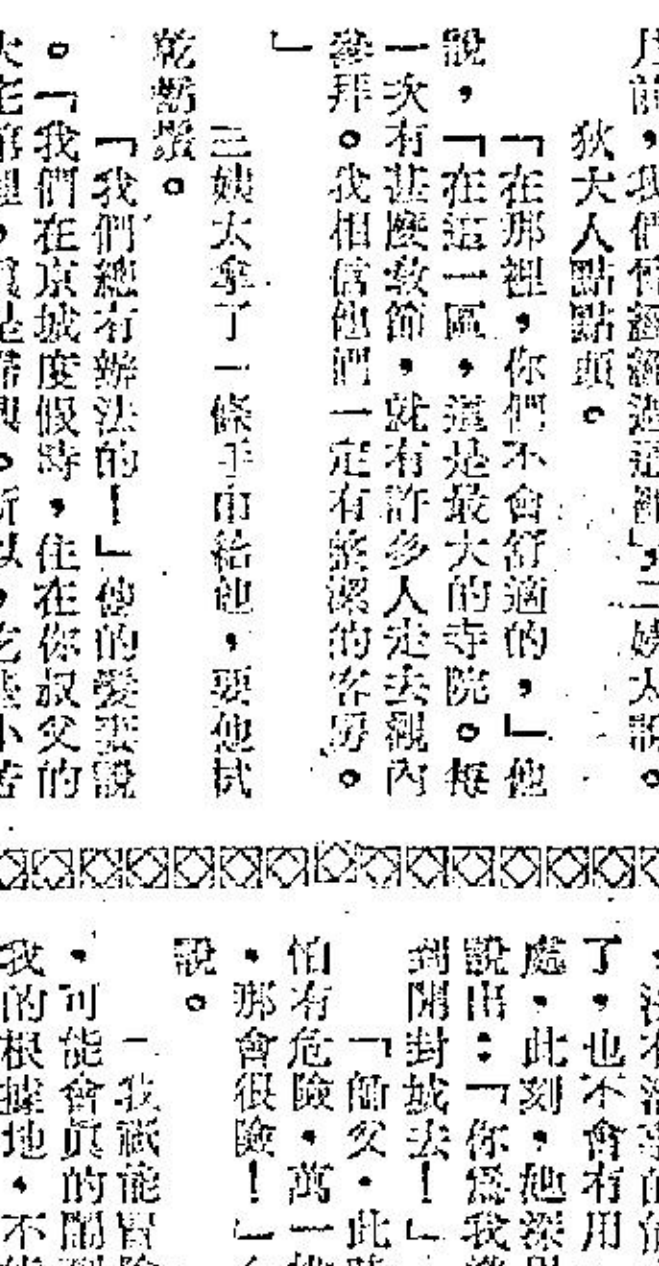 月前，我們曾經經過這裡，」二姨太說。
狄大人點點頭。
「在那裡，你們不會舒適的，」他
說，「在這一區，這是最大的寺院。每
一次有甚麼教節，就有許多人走去觀內
參拜。我相信他們一定有整潔的客房。
」
三姨太拿了一條手巾給他，要他拭
乾鬍鬚。
「我們總有辦法的！」他的愛妻說
。「我們在京城度假時，住在你叔父的
了，也不會有用
處，此刻，他深
說出：「你為我
到開封城去！」
「師父，此
怕有危險，萬一
，那會很險！」
說。
「我祇能冒險
，可能會真的鬧
我的根據地，不